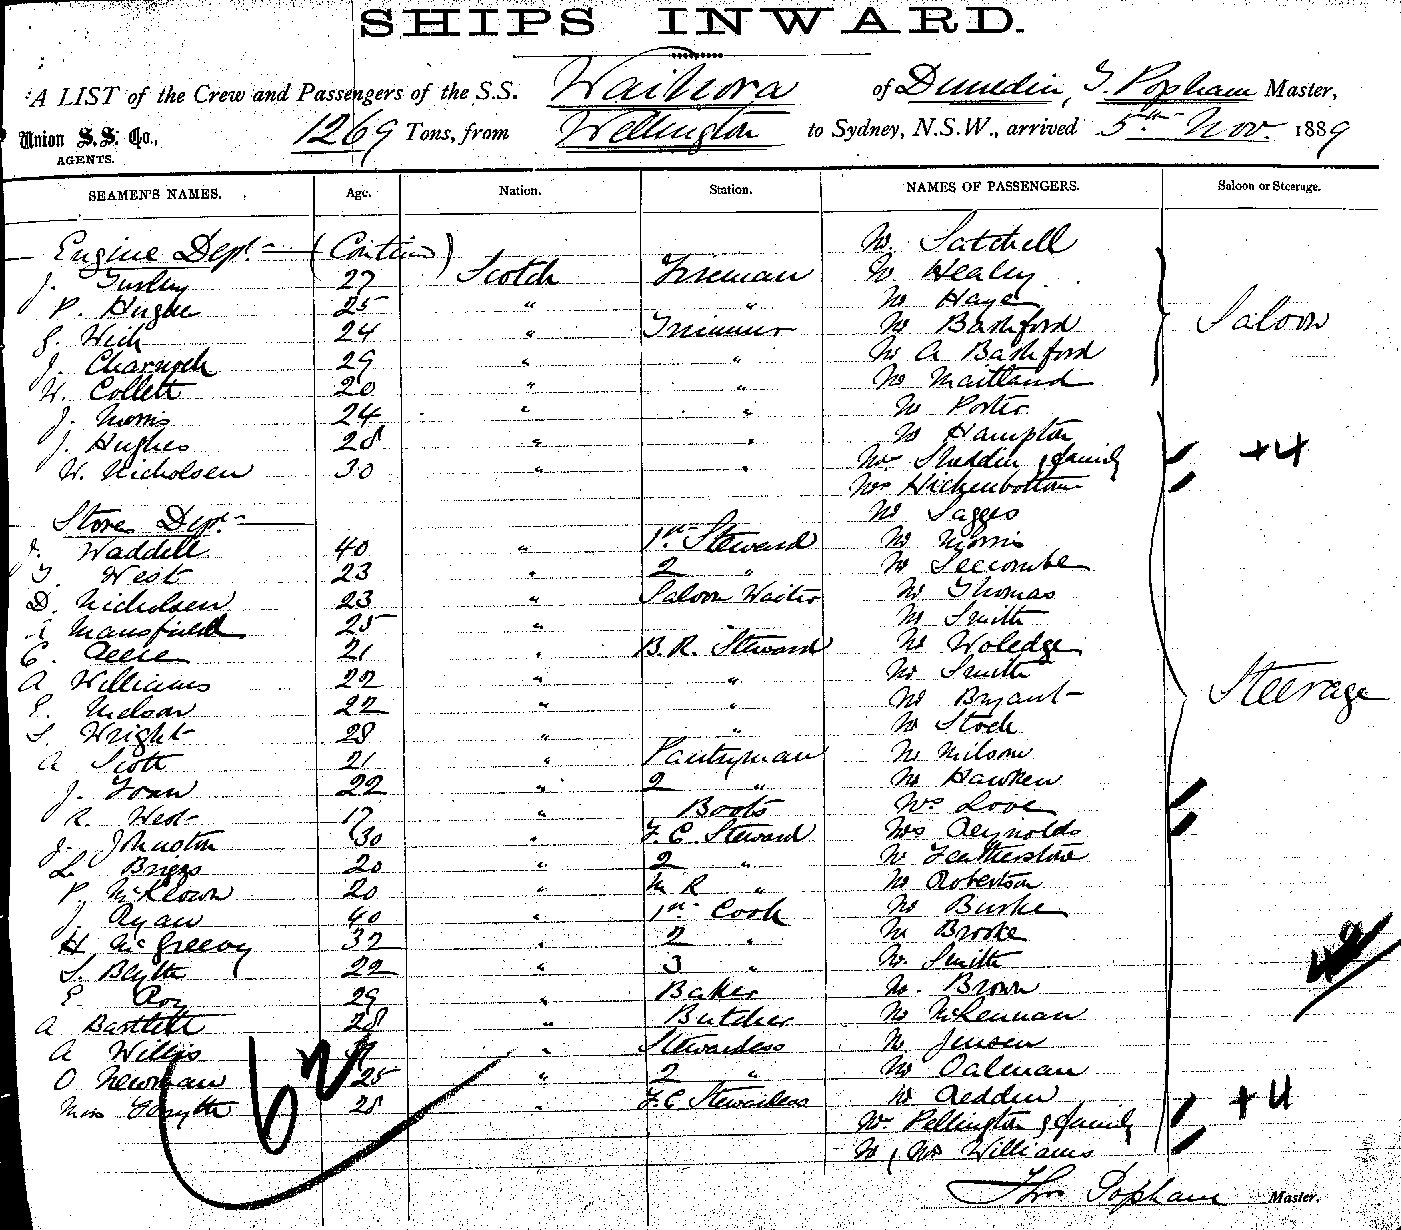 SHIPS INWARD.
A LIST of the Crew and Passengers of the S.S. Waihora of Dunedin, T. Popham Master,
Union S.S. Co., AGENTS. 1269 Tons, from Wellington to Sydney, N.S.W., arrived 5th Nov. 1889
SEAMEN'S NAMES. Age. Nation. Station. NAMES OF PASSENGERS. Saloon or Steerage.
Mr Satchell
Engine Dept (Contin)
J. 27 Scotch Fireman Mr Healey
P. Hugue 25 " " Mr Haye
24 " Trimmer Mr Bashford Saloon
J. Charnock 29 " " Mr A Bashford
W. Collett 20 " " Mr Maitland
J. Morris 24 " " Mr Porter
J. Hughes 28 " " Mr Hampton
W. Nicholsen 30 " " Mrs & family +4
Mrs Hichenbottam
Store Dept Mr Saggs
Waddell 40 " 1st Steward Mr Morris
T. West 23 " 2 " Mr Seccombe
D. Nicholsen 23 " Saloon Waiter Mr Thomas
Mansfield 25 " " Mr Smith
C. Reece 21 " B.R. Steward Mr Woledge
A Williams 22 " " Mr Smith
E. Nelson 22 " " Mr Bryant Steerage
S. Wright 28 " " Mr Stock
A Scott 21 " Pantryman Mr Milson
J. 22 " 2 " Mr Hawken
R. 17 " Boots Mrs Love
J. Johnston 30 " F.C. Steward Mrs Reynolds
L. Briggs 20 " 2 " Mr Featherstone
P. McKeown 20 " M R " Mr Robertson
J. Ryan 40 " 1st Cook Mr Burke
H McGreevy 32 " 2 " Mr Brooke
S. Blyth 22 " 3 " Mr Smith
E Roy 29 " Baker Mr. Brown
A Bartlett 28 " Butcher Mr McLennan
A Willis " Stewardess Mr Jensen
O Newman 25 " 2 " Mr Oalman
Miss Forsyth 28 " F.C. Stewardess Mr Redden +4
62 Mr Pellington & family
Mr & Mrs Williams
Thos Popham Master.